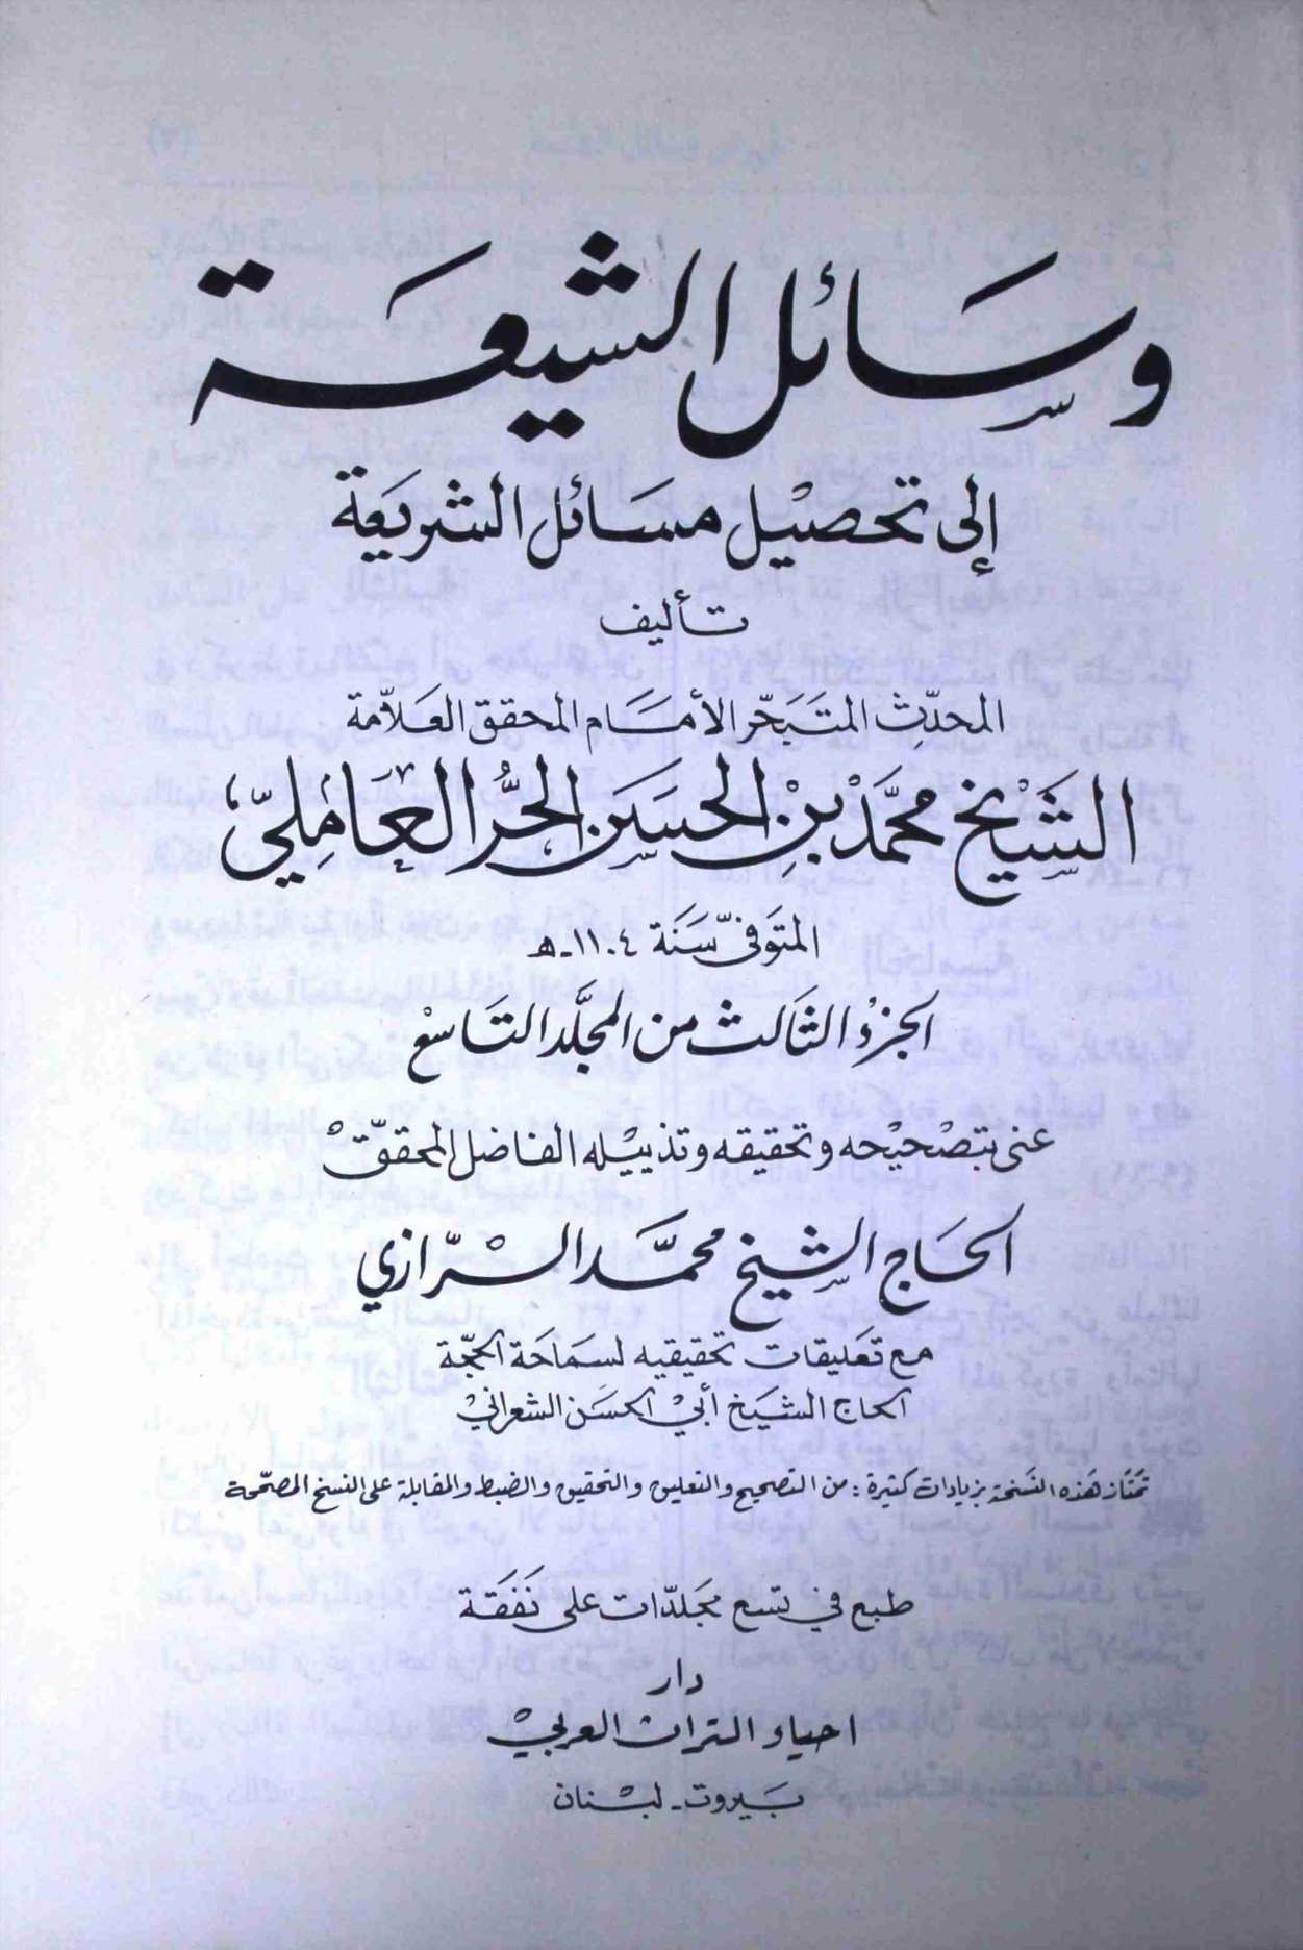 وسائل الشيعة
إلى تحصيل مسائل الشريعة
تأليف
المحدّث المتبحّر الأمام المحقق العلاّمة
الشيخ محمّد بن الحسن الحرّ العاملي
المتوفىّ سنة ١١٠٤ هـ
الجزء الثالث من المجلّد التاسع
عنى بتصحيحه وتحقيقه وتذييله الفاضل المحقّق
الحاج الشيخ محمّد الرّازي
مع تعليقات تحقيقيه لسماحة الحجّة
الحاج الشيخ أبي الحسن الشعراني
تمتاز هذه النسخة بزيادات كثيرة : من التصحيح والتعليق والتحقيق والضبط والمقابلة على النسخ المصحّحة
طبع في تسع مجلدّات على نفقة
دار
احياء التراث العربي
بيروت - لبنان